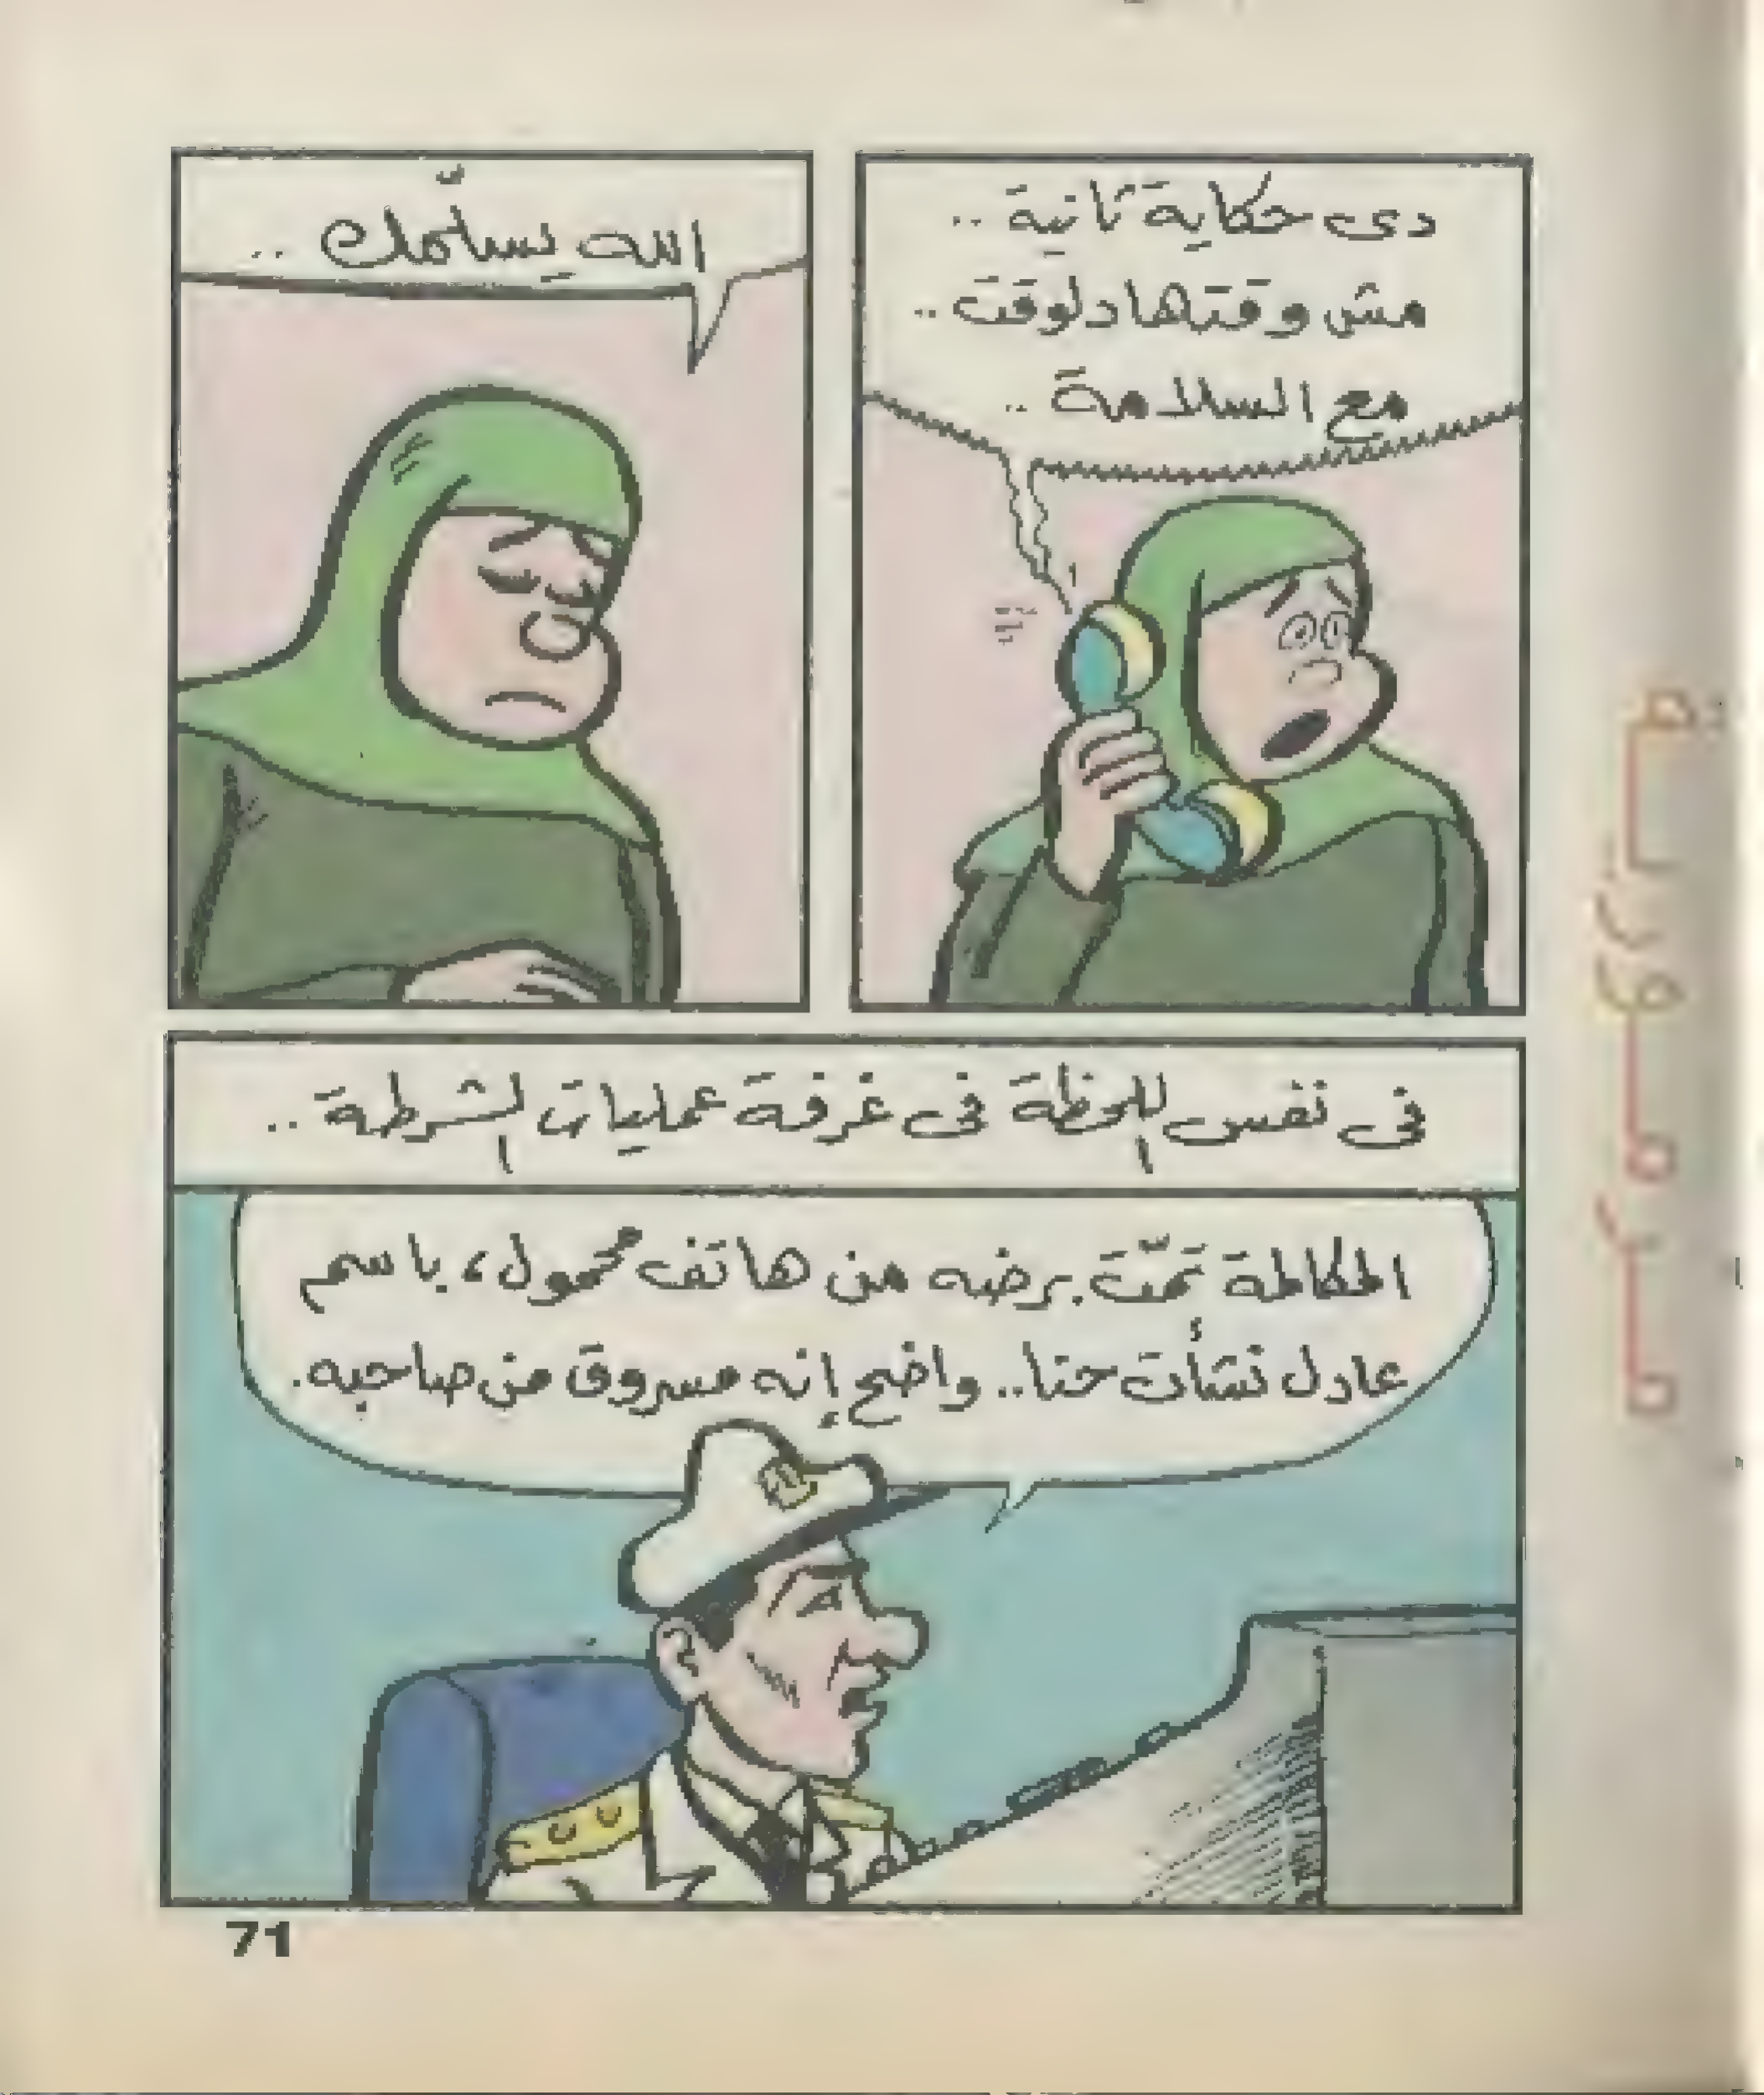 دى حكاية ثانية ..
مش وقتها دلوقت ..
مع السلامة ..
الله يسلّمك ..
فى نفس اللحظة فى غرفة عمليات الشرطة ..
المكالمة تمّت برضه من هاتف محمول، باسم
عادل نشأت حنا.. واضح إنه مسروق من صاحبه.
71